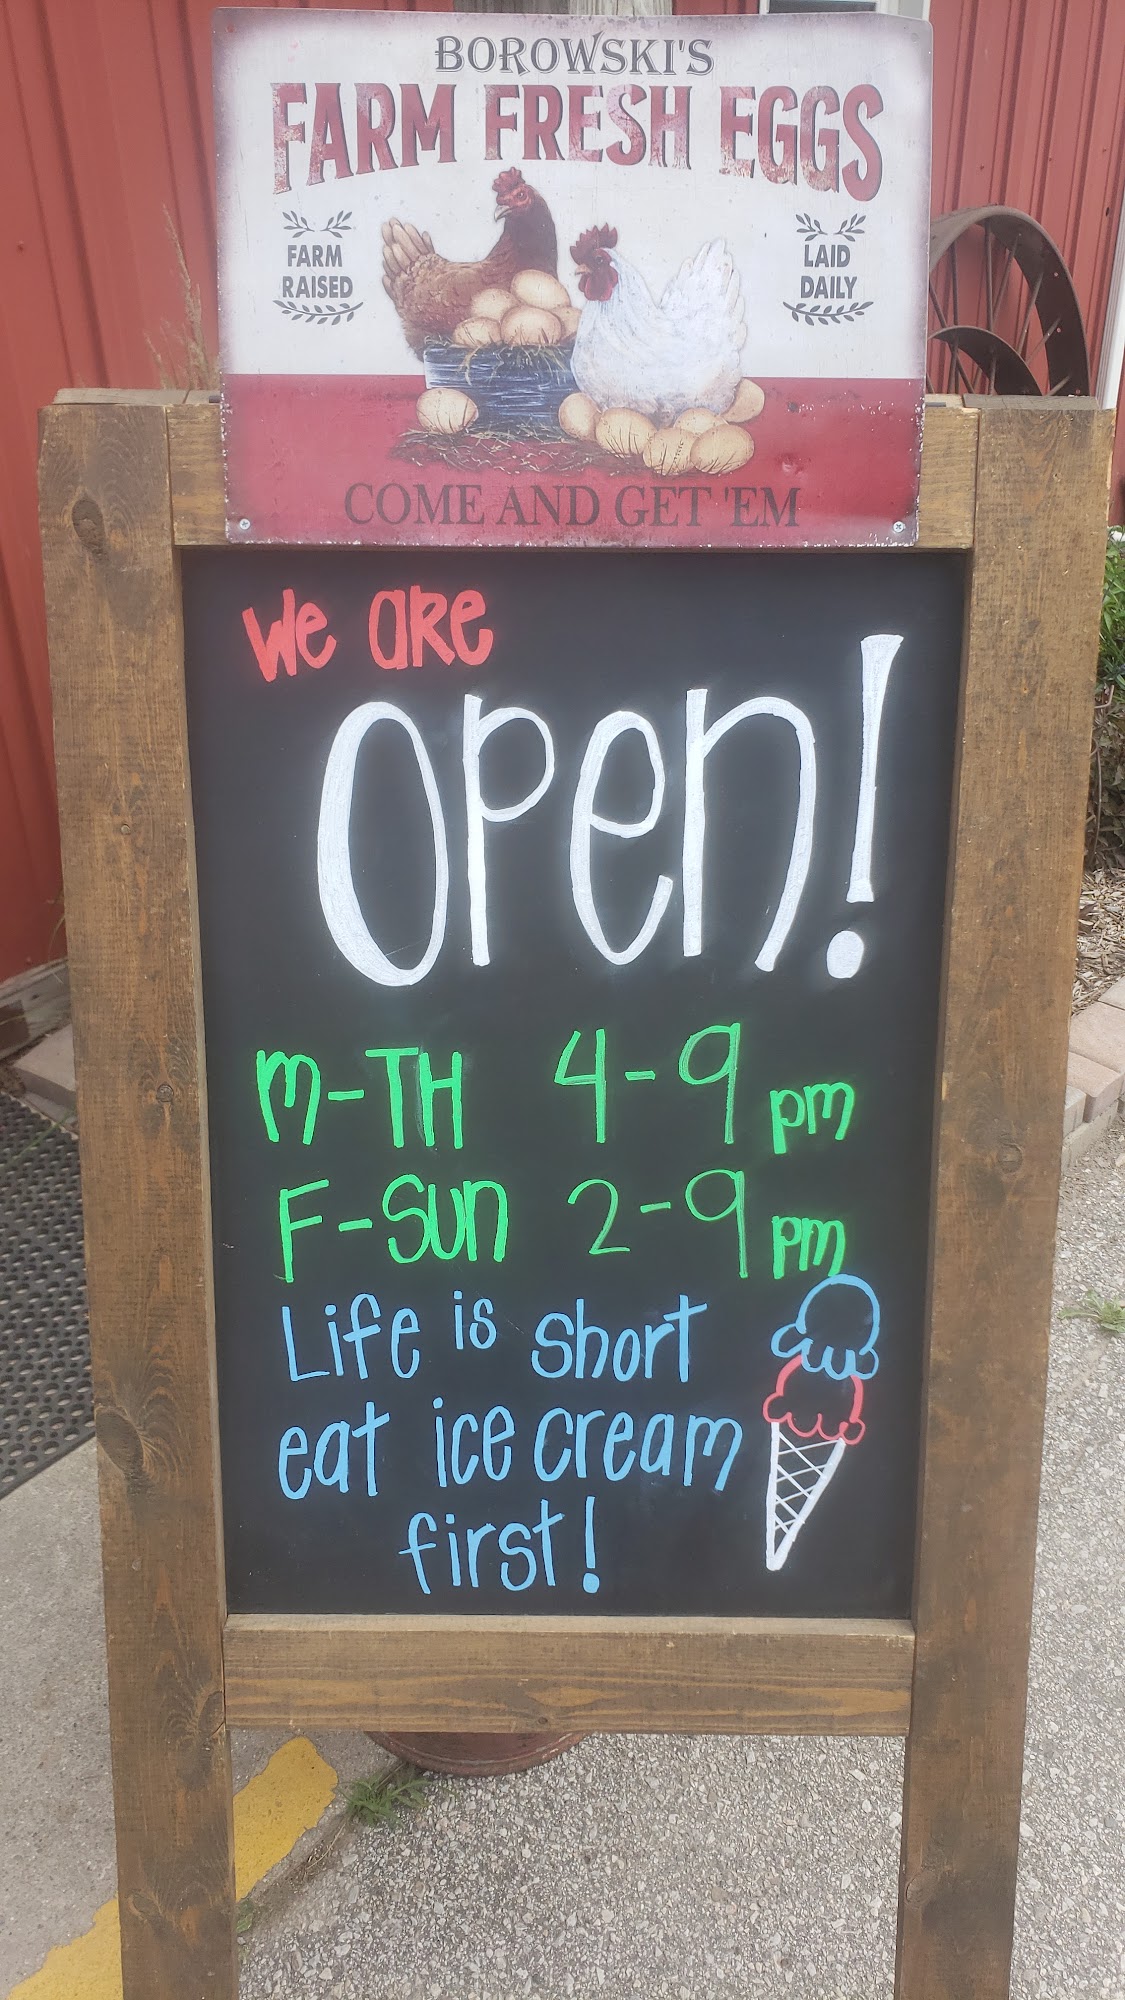 BOROWSKI'S
FARM FRESH EGGS
FARM
RAISED
LAID
DAILY
COME AND GET 'EM
We are
open!
M-TH 4-9 pm
F-Sun 2-9 pm
Life is short
eat ice cream
first!